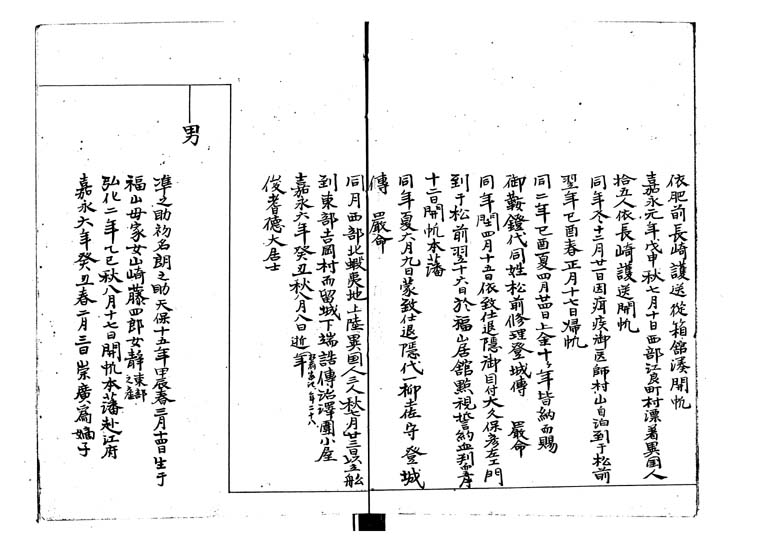 依肥前長崎護送從箱舘湊開帆
嘉永元年戊申秋七月十日西部江良町村漂着異国人
拾五人依長崎護送開帆
同年冬十二月廿日因痾疾御医師村山自泊到于松前
翌年己酉春正月十七日帰帆
同二年己酉夏四月廿四日上金十ヶ年皆納而賜
御鞍鐙代同姓松前修理登城傳 嚴命
同年閏四月十五日依致仕退隠御目付大久保彦左エ門
到于松前翌十六日於福山居舘黙視誓約血判
十二日開帆本藩
同年夏六月九日蒙致仕退隠代一柳土佐守登城
傳 嚴命
同月西部北蝦夷地上陸異国人三人秋七月廿三日以立舩
到東部吉岡村而留城下端誥傳治澤圍小屋
嘉永六年癸丑秋八月八日逝年
俊耆德大居士
男
準之助初名朗之助天保十五年甲辰春三月十四日生于
福山母家女山崎藤四郎女靜
弘化二年乙巳秋八月十七日開帆本藩赴江府
嘉永六年癸丑春二月三日崇廣為嫡子